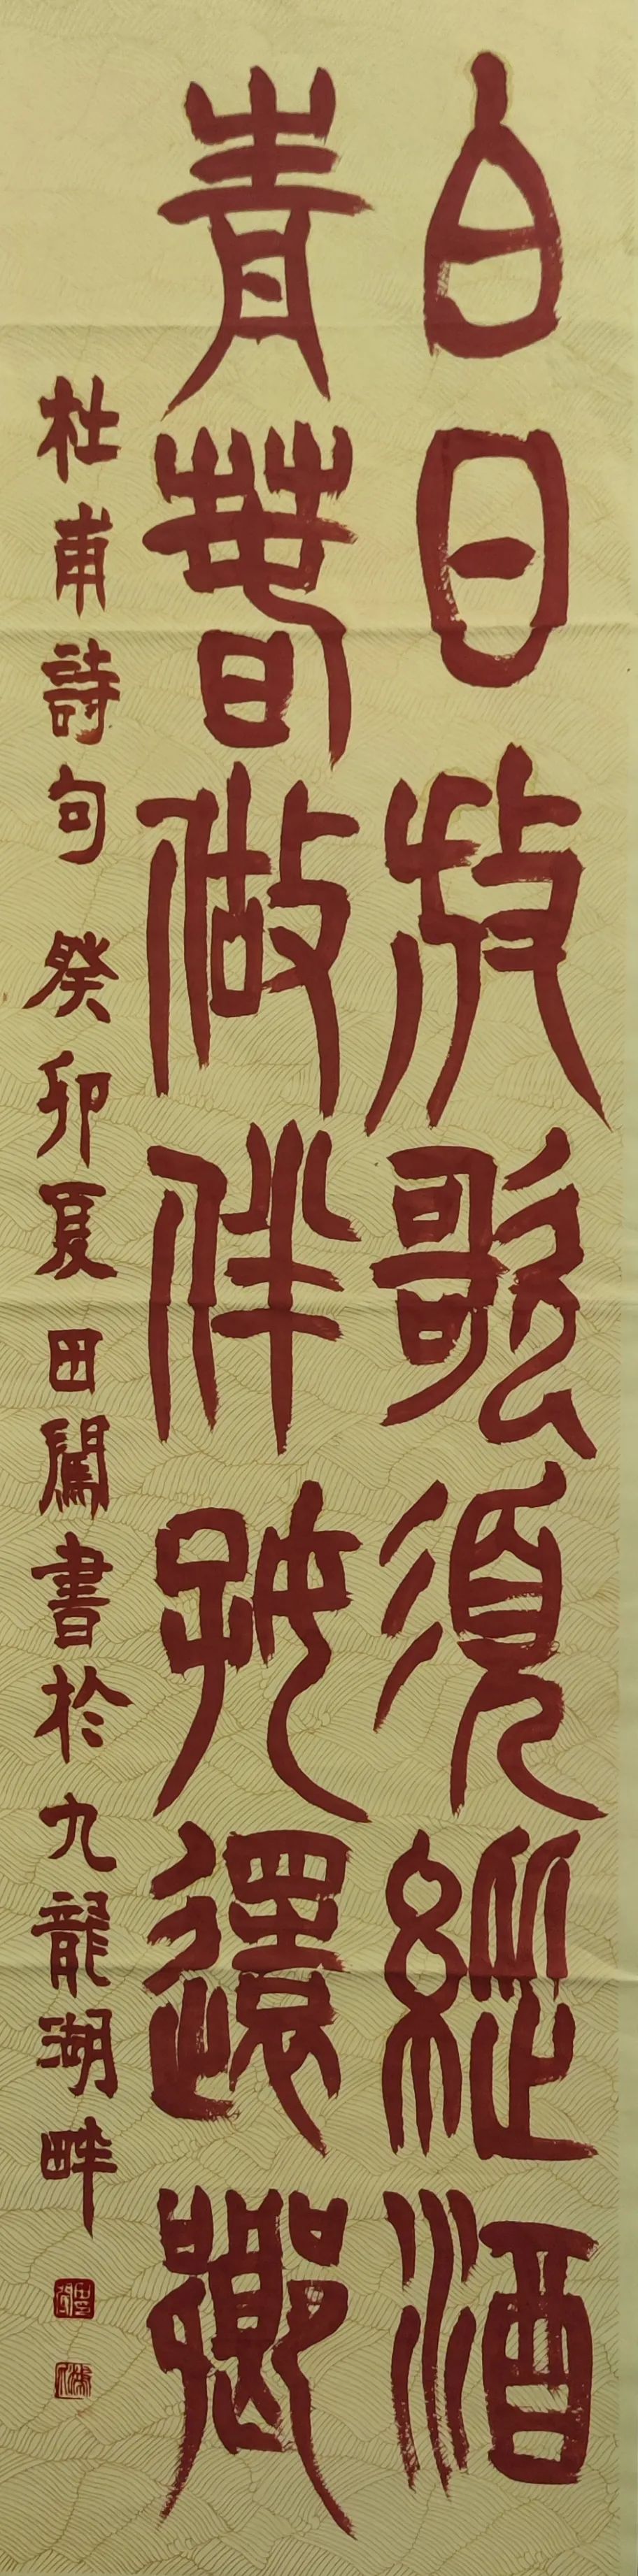 白日放歌須縱酒
青春做伴好還鄉
杜甫詩句 癸卯夏 田闖書於九龍湖畔